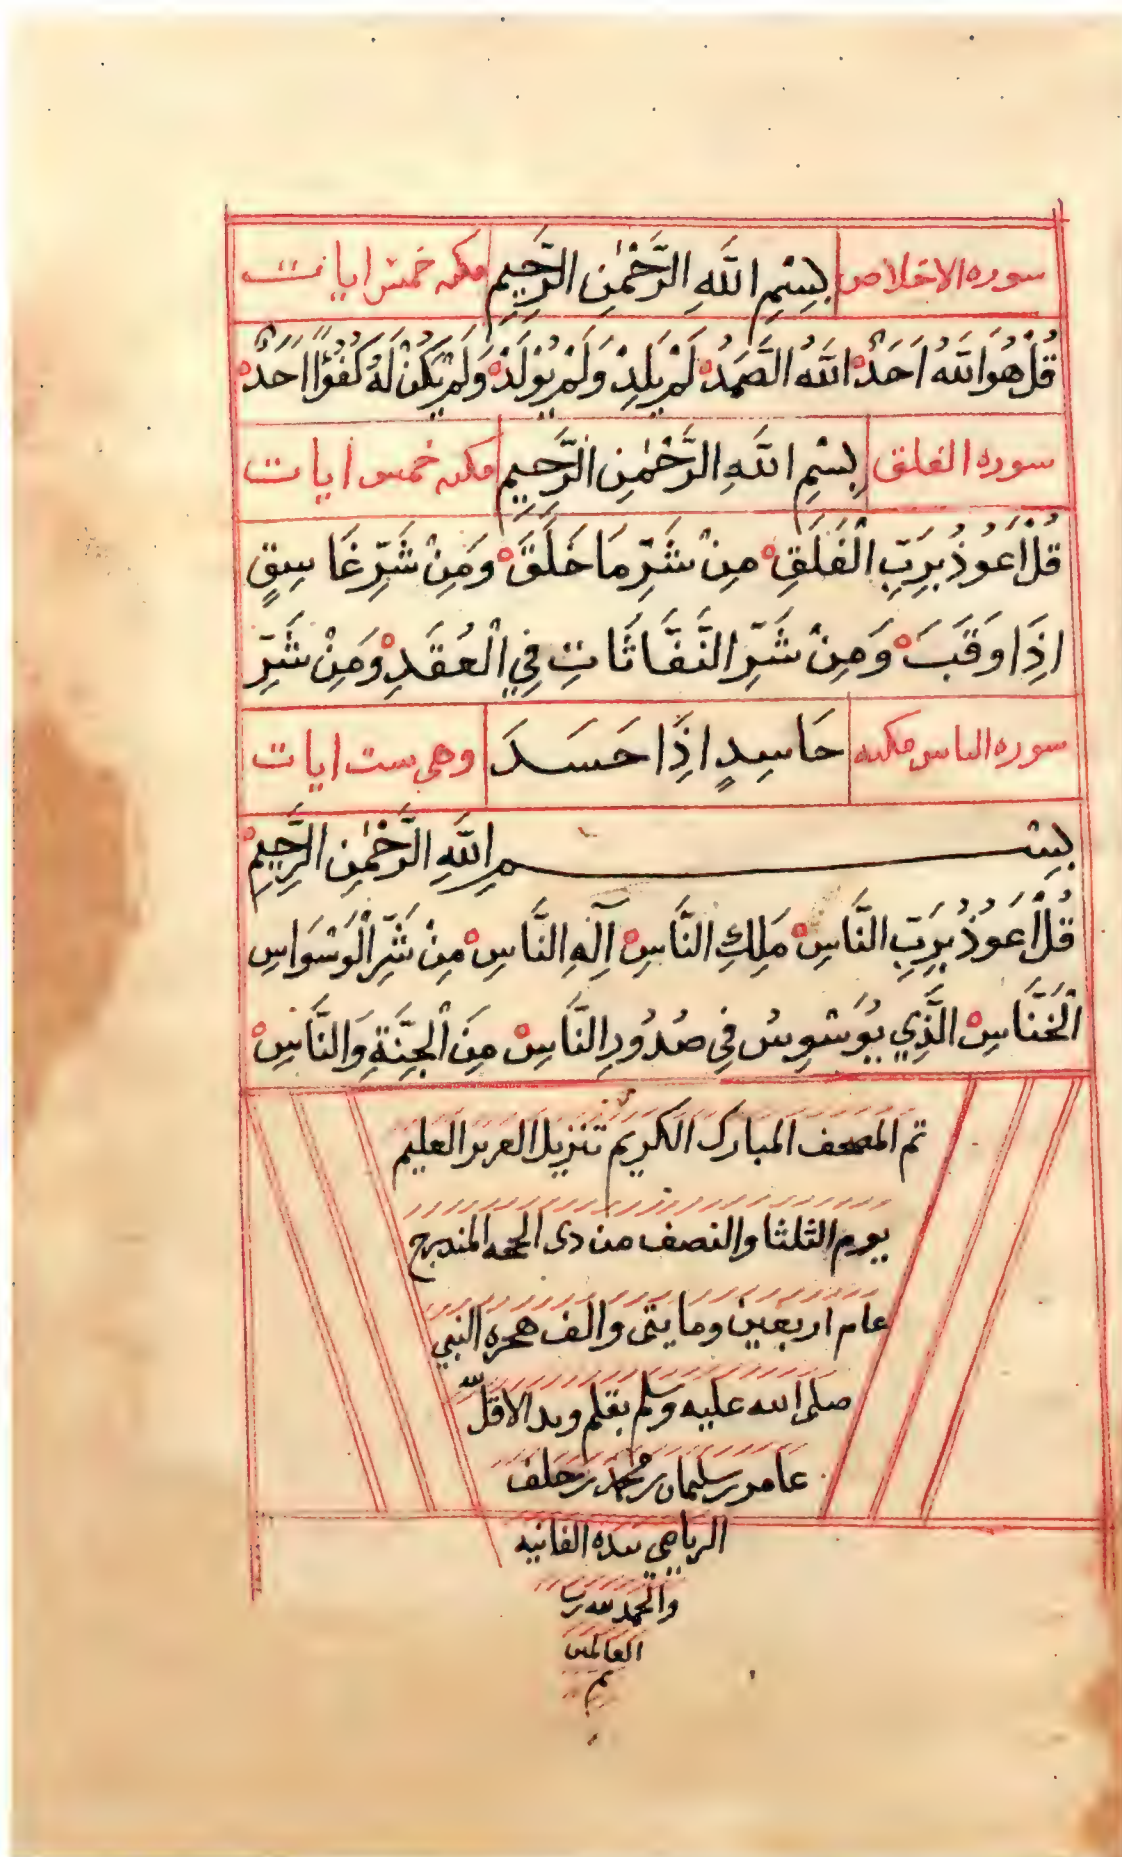 سوره الاخلاص بِسْمِ اللَّهِ الرَّحْمٰنِ الرَّحِيمِ مكيه خمس ايات
قُلْ هُوَ اللَّهُ اَحَدٌ اللَّهُ الصَّمَدُ لَمْ يَلِدْ وَلَمْ يُوْلَدْ وَلَمْ يَكُنْ لَهُ كُفُوًا اَحَدٌ
سوره الفلق بِسْمِ اللَّهِ الرَّحْمٰنِ الرَّحِيمِ مكيه خمس ايات
قُلْ اَعُوْذُ بِرَبِّ الْفَلَقِ مِنْ شَرِّ مَا خَلَقَ وَمِنْ شَرِّ غَاسِقٍ
اِذَا وَقَبَ وَمِنْ شَرِّ النَّفَّاثَاتِ فِي الْعُقَدِ وَمِنْ شَرِّ
سوره الناس مكيه حَاسِدٍ اِذَا حَسَدَ وهي ست ايات
بِسْمِ اللَّهِ الرَّحْمٰنِ الرَّحِيمِ
قُلْ اَعُوْذُ بِرَبِّ النَّاسِ مَلِكِ النَّاسِ اِلٰهِ النَّاسِ مِنْ شَرِّ الْوَسْوَاسِ
الْخَنَّاسِ الَّذِي يُوَسْوِسُ فِي صُدُورِ النَّاسِ مِنَ الْجِنَّةِ وَالنَّاسِ
تم المصحف المبارك الكريم تنزيل العزيز العليم
يوم الثلثا والنصف من ذي الحجه المندرج
عام اربعين ومايتي والف هجره النبي
صلى الله عليه وسلم بقلم ويد الاقل لله
عامر بن سليمان بن محمد بن خلف
الريامي بيده الفانيه
والحمد لله رب
العالمين
تم